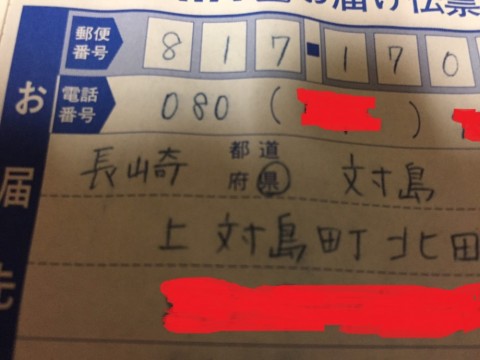 お届け伝票
郵便番号 817-170
電話番号 080 ( )
お届先
長崎 都道府県 対島
上対島町北田